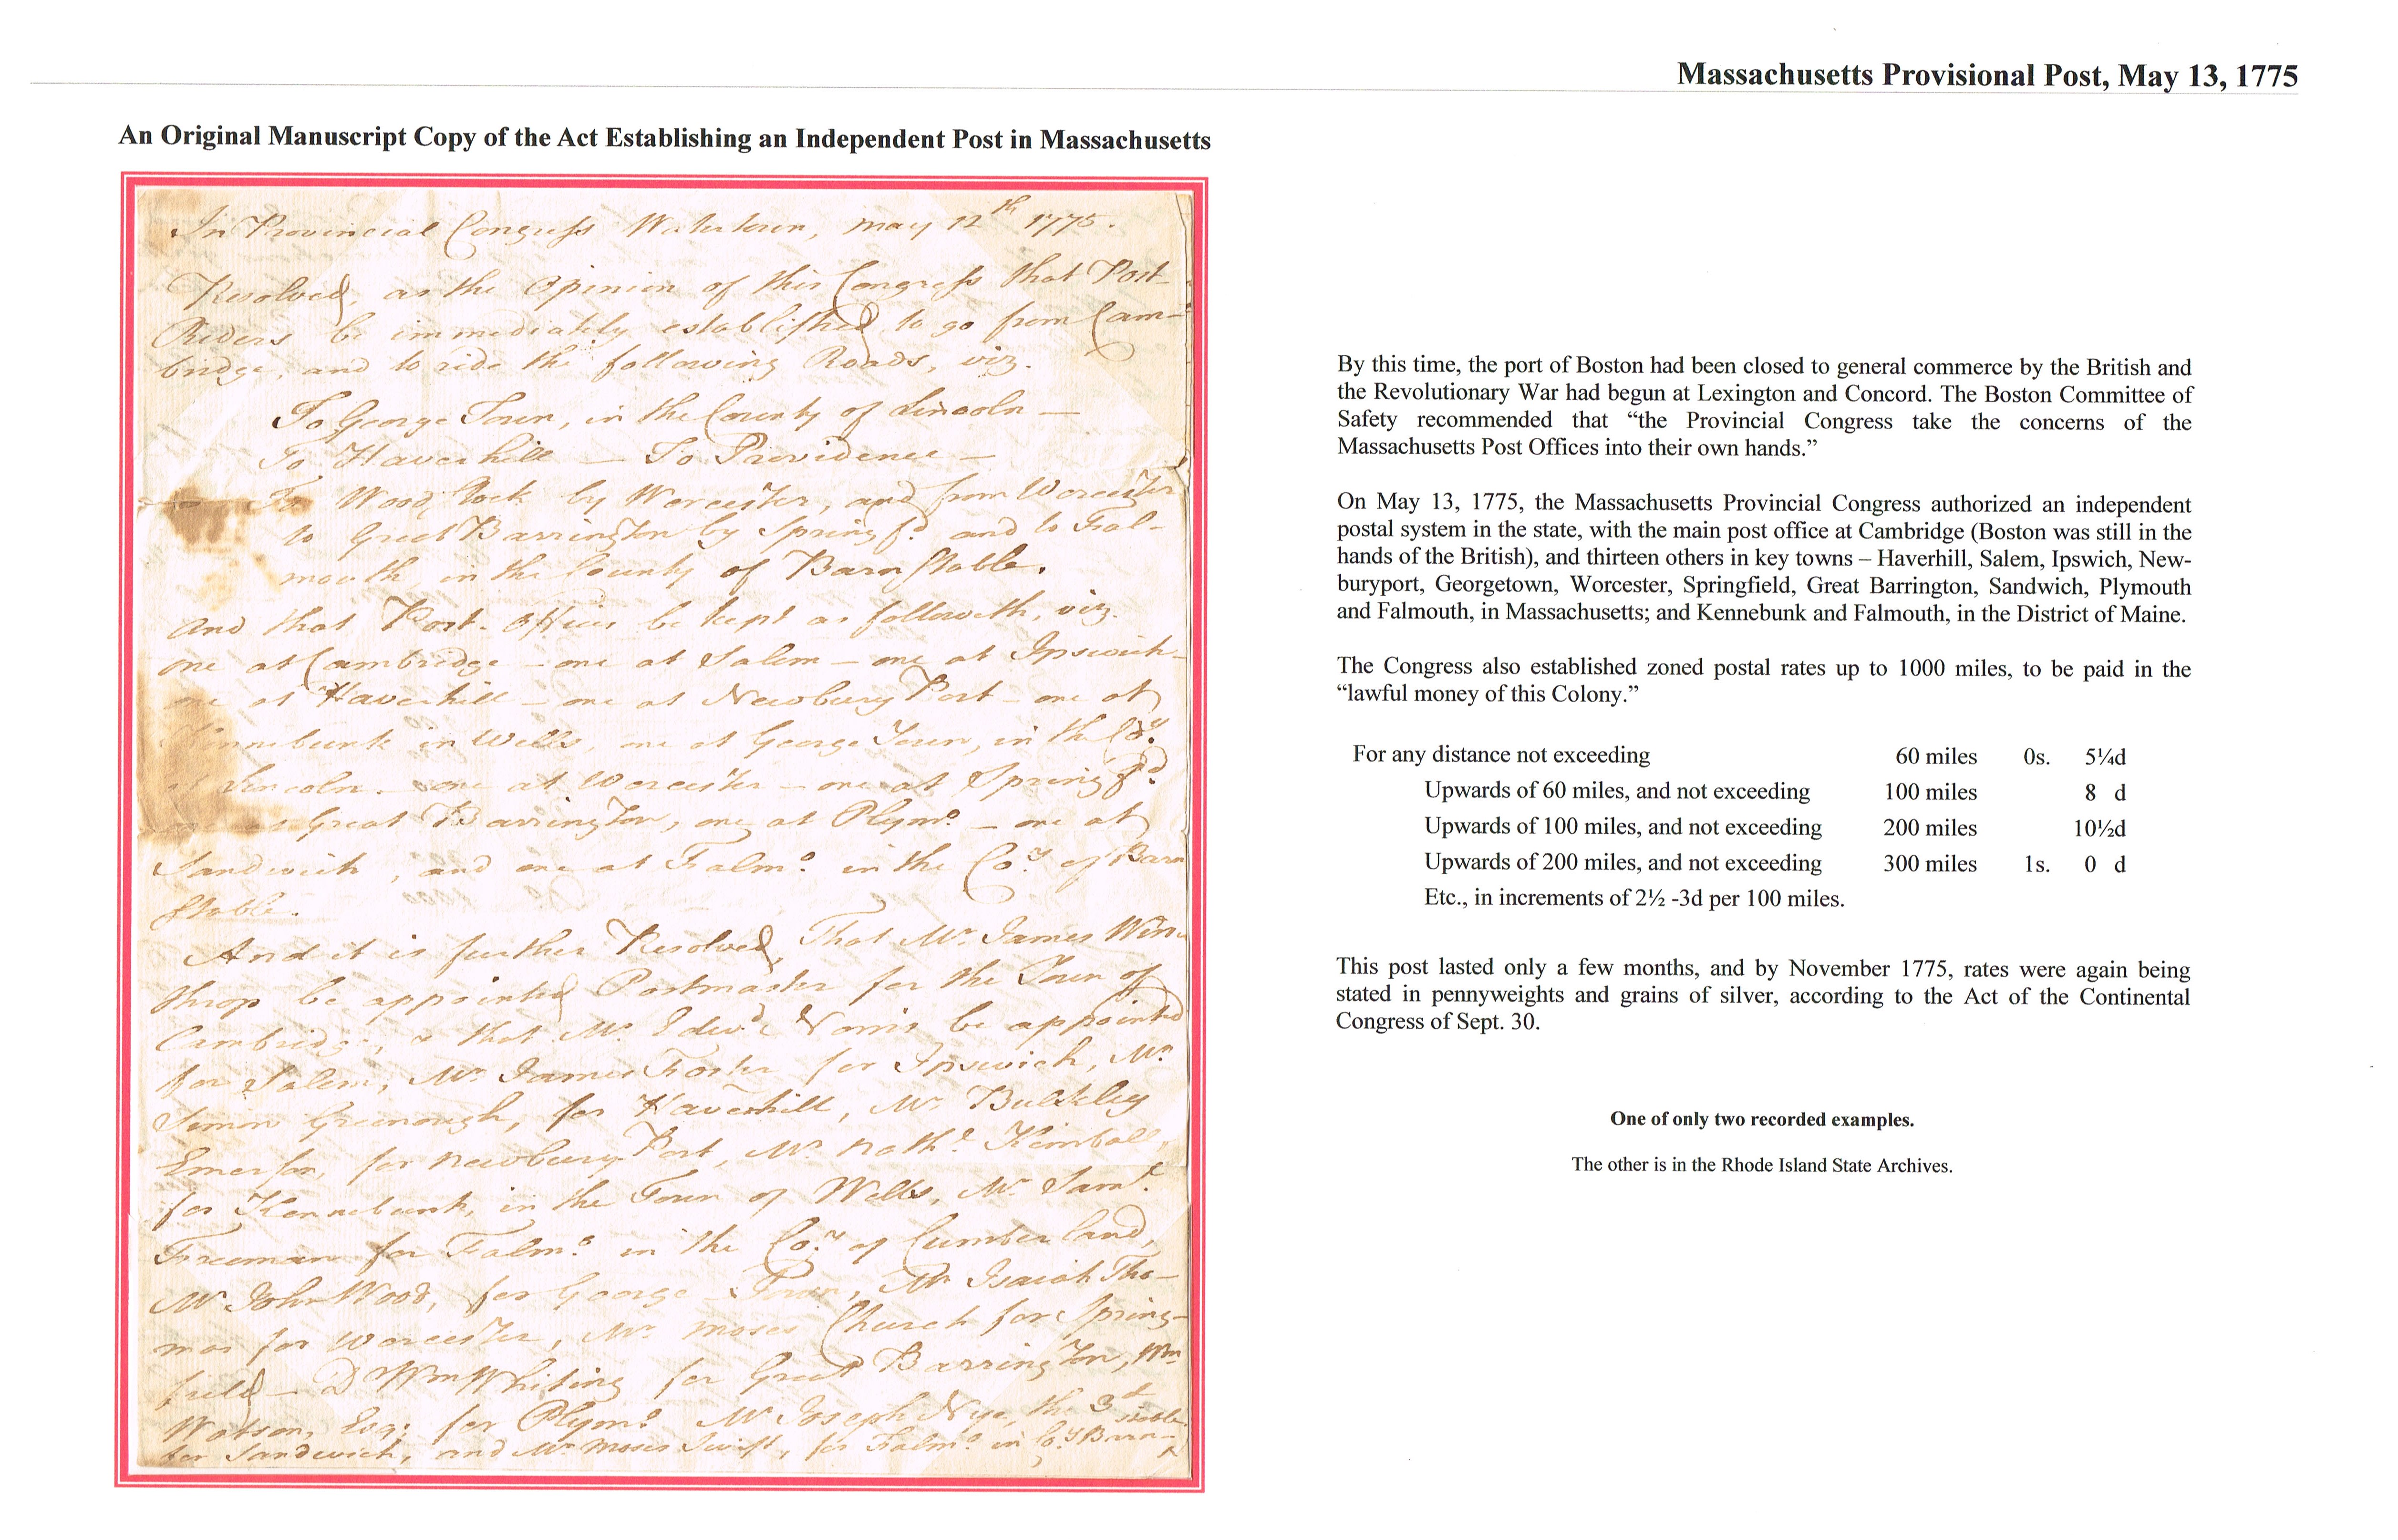 Massachusetts Provisional Post, May 13, 1775
An Original Manuscript Copy of the Act Establishing an Independent Post in Massachusetts
In Provincial Congress Watertown, may 12th 1775.
Resolved, as the Opinion of this Congress that Post-
Riders be immediately established, to go from Cam-
bridge, and to ride the following Roads, viz.
To George Town, in the County of Lincoln —
To Haverhill — To Providence —
To Wood,stock by Worcester, and from Worcester
to Great Barrington by Springfd. and to Fal-
mouth in the County of Barnstable.
And that Post-Offices be kept as followeth, viz.
one at Cambridge — one at Salem — one at Ipswich —
one at Haverhill — one at Newbury Port — one at
Kennebunk in Wells, one at George Town, in the Coy.
of Lincoln. one at Worcester — one at Springfd.
at Great Barrington, one at Plymo. — one at
Sandwich, and one at Falmo. in the Coy. of Barn
stable.
And it is further Resolved, That Mr. James Win-
throp be appointed Postmaster for the Town of
Cambridge, & that Mr. Edwd. Norris be appointed
for Salem, Mr. James Foster for Ipswich, Mr.
Simon Greenough, for Haverhill, Mr. Bulkley
Emerson, for Newbury Port, Mr. Nathl. Kimball,
for Kennebunk, in the Town of Wells, Mr. Saml.
Freeman for Falmo. in the Coy. of Cumberland,
Mr. John Wood, for George Town, Mr. Isaiah Tho-
mas for Worcester, Mr. Moses Church for Spring-
field — Dr. Wm Whiting for Great Barrington, Wm.
Watson, Esq; for Plymo. Mr Joseph Nye, the 3d
for Sandwich, and Mr. Moses Swift, for Falmo. in Coy Barn-
stable
By this time, the port of Boston had been closed to general commerce by the British and
the Revolutionary War had begun at Lexington and Concord. The Boston Committee of
Safety recommended that “the Provincial Congress take the concerns of the
Massachusetts Post Offices into their own hands.”
On May 13, 1775, the Massachusetts Provincial Congress authorized an independent
postal system in the state, with the main post office at Cambridge (Boston was still in the
hands of the British), and thirteen others in key towns – Haverhill, Salem, Ipswich, New-
buryport, Georgetown, Worcester, Springfield, Great Barrington, Sandwich, Plymouth
and Falmouth, in Massachusetts; and Kennebunk and Falmouth, in the District of Maine.
The Congress also established zoned postal rates up to 1000 miles, to be paid in the
“lawful money of this Colony.”
For any distance not exceeding 60 miles 0s. 5¼d
Upwards of 60 miles, and not exceeding 100 miles 8 d
Upwards of 100 miles, and not exceeding 200 miles 10½d
Upwards of 200 miles, and not exceeding 300 miles 1s. 0 d
Etc., in increments of 2½ -3d per 100 miles.
This post lasted only a few months, and by November 1775, rates were again being
stated in pennyweights and grains of silver, according to the Act of the Continental
Congress of Sept. 30.
One of only two recorded examples.
The other is in the Rhode Island State Archives.